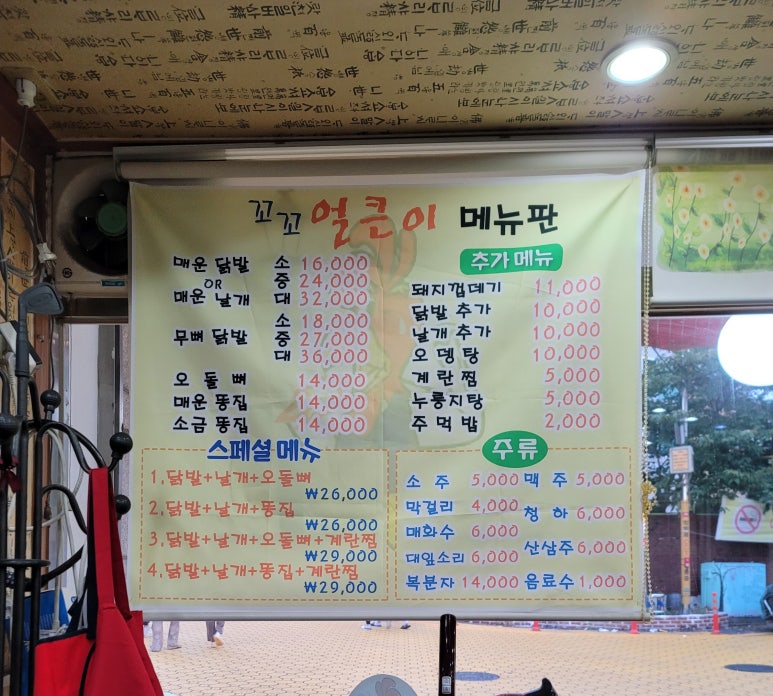 꼬꼬 얼큰이 메뉴판
매운 닭발 소 16,000
OR 중 24,000
매운 날개 대 32,000
소 18,000
무뼈 닭발 중 27,000
대 36,000
오돌뼈 14,000
매운 똥집 14,000
소금 똥집 14,000
추가메뉴
돼지껍데기 11,000
닭발 추가 10,000
날개 추가 10,000
오뎅탕 10,000
계란찜 5,000
누룽지탕 5,000
주먹밥 2,000
스페셜 메뉴
1.닭발+날개+오돌뼈
₩26,000
2.닭발+날개+똥집
₩26,000
3.닭발+날개+오돌뼈+계란찜
₩29,000
4.닭발+날개+똥집+계란찜
₩29,000
주류
소주 5,000 맥주 5,000
막걸리 4,000 청하 6,000
매화수 6,000
대잎소리 6,000 산삼주 6,000
복분자 14,000 음료수 1,000